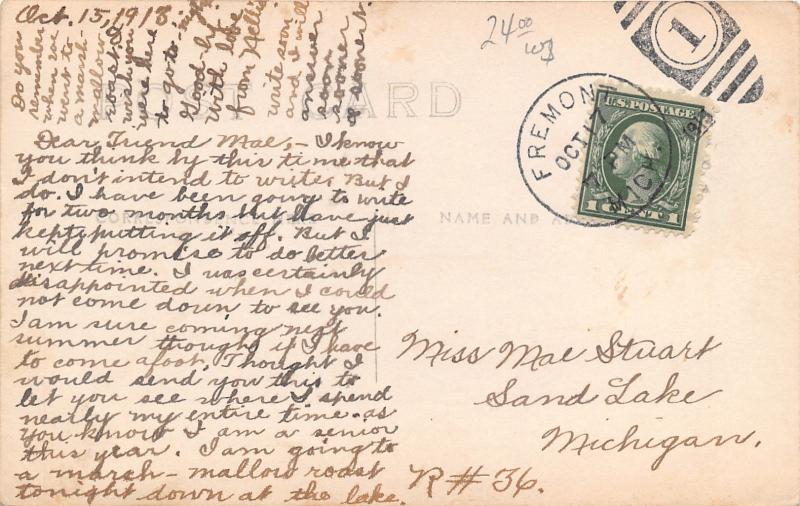 Oct. 15, 1913.
Dear Friend Mae,- I know
you think by this time that
I don't intend to write. But I
do. I have been going to write
for two months but have just
kept putting it off. But I
will promise to do better
next time. I was certainly
disappointed when I could
not come down to see you.
I am sure coming next
summer though if I have
to come afoot. Thought I
would send you this to
let you see where I spend
nearly my entire time as
you know I am a senior
this year. I am going to
a march-mallow roast
tonight down at the lake.
Do you
remember
when we
went to
a marsh-
mallow
roast. I
wish you
were here
to go to-
Good-by
With love
from Nellie
write soon
and I will
answer
soon
sooner
& soonest
POST CARD
CORRESPONDENCE
NAME AND
24.00
FREMONT
OCT 17
7 PM
1913
MICH.
1
U.S. POSTAGE
1 CENT 1
Miss Mae Stuart
Sand Lake
Michigan.
R # 36.